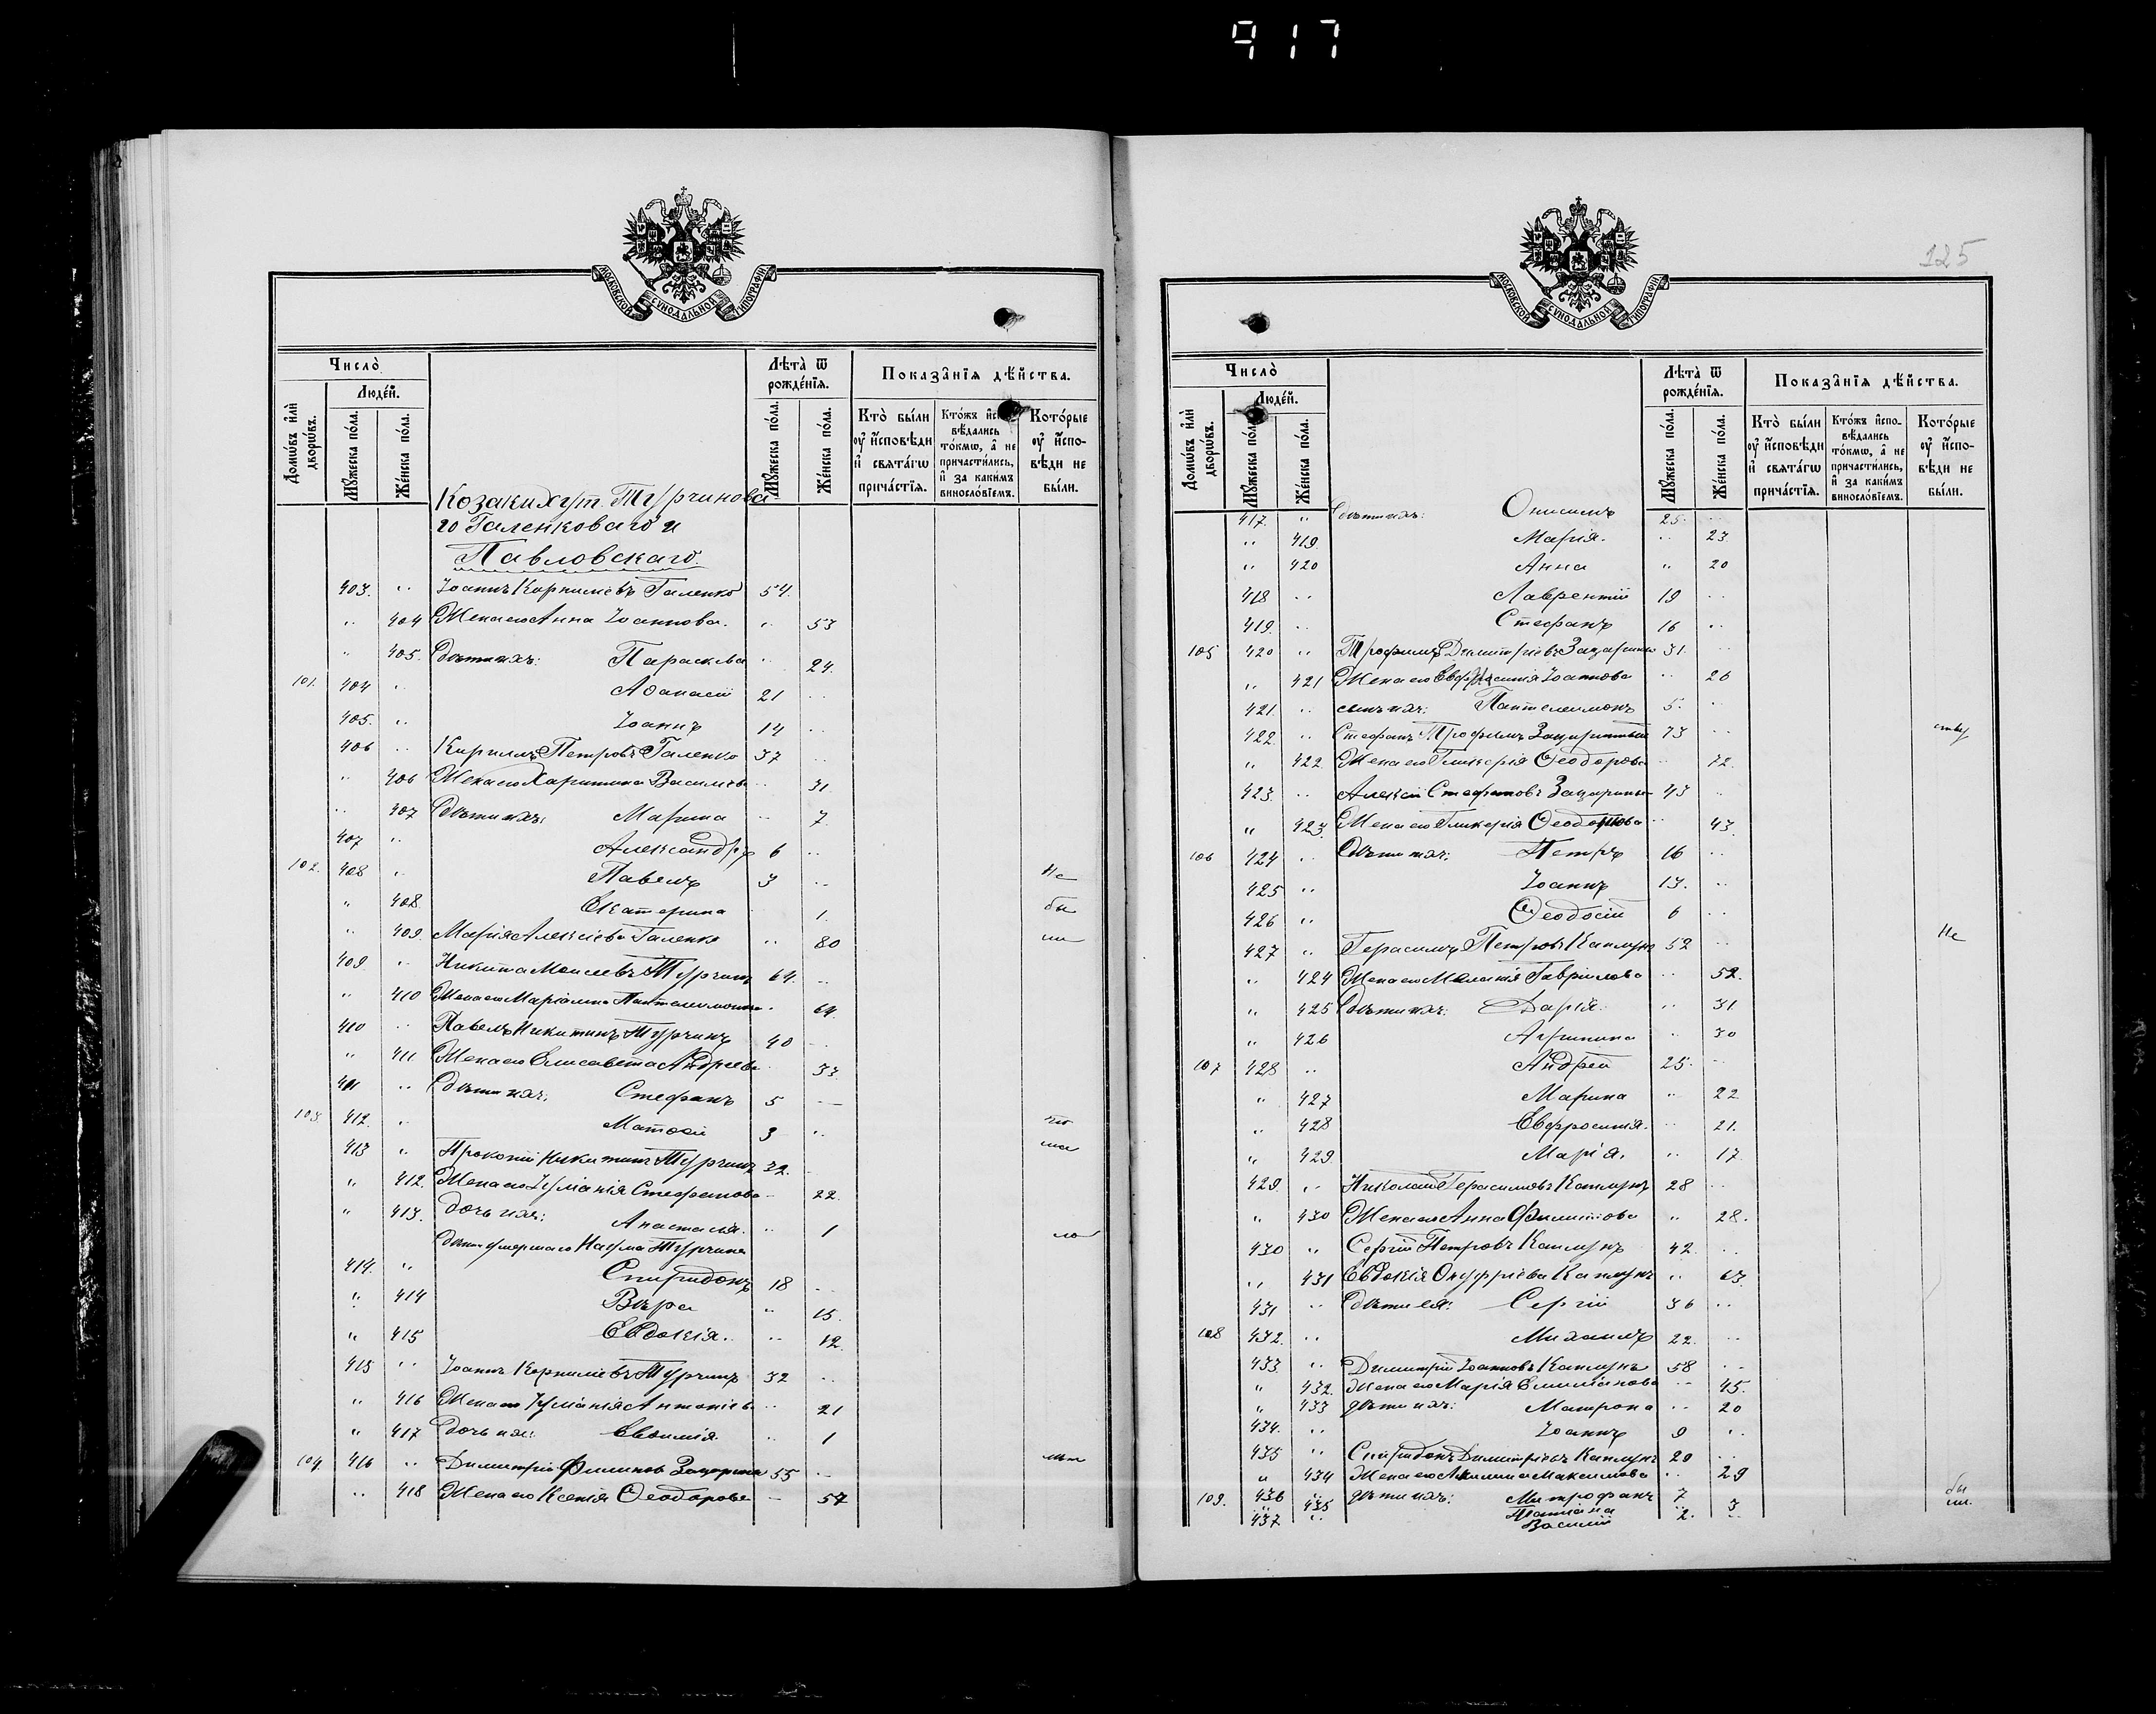 917
МОСКОВСКОЙ СѴНОДАЛЬНОЙ ТИПОГРАФІИ
Число̀
Людей.
Домѡвъ и҆лѝ дворѡвъ.
Мꙋжеска по́ла.
Же́нска по́ла.
Лѣта̀ ѿ рожде́нїѧ.
Мꙋжеска по́ла.
Же́нска по́ла.
Показа̑нїѧ дѣ́йства.
Кто̀ бы́ли оу҆ и҆сповѣди и҆ свѧта́гѡ прича́стїѧ.
Кто́жъ и҆сповѣдались то́кмѡ, а҆ не причасти́лись, и҆ за каки́мъ винословїемъ.
Кото́рые оу҆ и҆сповѣди не бы́ли.
Козаки хут. Турчинова
го Галенковаго и
Павловскаго.
403. " Іоаннъ Корниліевъ Галенко 54.
" 404 Жена его Анна Іоаннова. " 53
" 405. Дѣти ихъ: Параскева " 24.
101. 404 " Аѳанасій 21 "
405. " Іоаннъ 14 "
406 " Кириллъ Петровъ Галенко 37 "
" 406 Жена его Харитина Василіева " 31
" 407 Дѣти ихъ: Марина " 7
407 " Александръ 6 "
102. 408 " Павелъ 3 " Не
" 408 Екатерина 1. бы
" 409. Марія Алексіева Галенко " 80 ли
409 " Никита Моисеевъ Турчинъ 64. "
" 410 Жена его Маріамна Пантелеимонова " 64.
410 " Павелъ Никитинъ Турчинъ 40 "
" 411 Жена его Елисавета Андреева " 33
411 " Дѣти ихъ: Стефанъ 5 "
103. 412. " Матѳей 3 "
413 " Прокопій Никитинъ Турчинъ 32. "
" 412. Жена его Іуліанія Стефанова " 22.
" 413. дочь ихъ: Анастасія. " 1
Дѣти умершаго Наума Турчина
414. " Спиридонъ 18 "
" 414 Вѣра " 15.
" 415 Евдокія. " 12.
415 " Іоаннъ Корниліевъ Турчинъ 32 "
" 416 Жена его Іуліанія Антоніева " 21
" 417 дочь ихъ: Евѳимія " 1
104. 416 " Димитрій Филиповъ 55 "
" 418 Жена его Ксенія Ѳеодорова " 57
125
МОСКОВСКОЙ СѴНОДАЛЬНОЙ ТИПОГРАФІИ
Число̀
Людей.
Домѡвъ и҆лѝ дворѡвъ.
Мꙋжеска по́ла.
Же́нска по́ла.
Лѣта̀ ѿ рожде́нїѧ.
Мꙋжеска по́ла.
Же́нска по́ла.
Показа̑нїѧ дѣ́йства.
Кто̀ бы́ли оу҆ и҆сповѣди и҆ свѧта́гѡ прича́стїѧ.
Кто́жъ и҆сповѣдались то́кмѡ, а҆ не причасти́лись, и҆ за каки́мъ винословїемъ.
Кото́рые оу҆ и҆сповѣди не бы́ли.
417. " Дѣти ихъ: Онисимъ 25. "
" 419. Марія. " 23
" 420 Анна " 20
418 " Лаврентій 19 "
419. " Стефанъ 16 "
105 420 " Трофимъ Димитріевъ 31. "
" 421 Жена его Евфросинія Іоаннова " 26
421. " сынъ ихъ: Пантелеимонъ 5. "
422. " Стефанъ Трофимъ 73 "
" 422. Жена его Гликерія Ѳеодорова " 72.
423. " Алексій Стефановъ 43 "
" 423. Жена его Гликерія " 43.
106 424 " Дѣти ихъ: Петръ 16 "
425 " Іоаннъ 13. "
426 " Ѳеодосій 6 "
427 " Герасимъ Петровъ Каплунъ 52 " Не
" 424 Жена его Меланія Гаврилова " 52.
" 425 Дѣти ихъ: Дарія. " 31.
" 426 Агрипина " 30
107 428 " Андрей 25. "
" 427 Марина " 22
" 428 Евфросинія. " 21.
" 429 Марія. " 17.
429. " Николай Герасимовъ Каплунъ 28 "
" 430 Жена его Анна " 28.
430 " Сергій Петровъ Каплунъ 42. "
" 431 Евдокія Онуфріева Каплунъ " 63.
431 " Дѣти ея: Сергій 36 "
108 432. " Михаилъ 22. "
433 " Димитрій Іоанновъ Каплунъ 58 "
" 432. Жена его Марія Емиліанова " 45.
" 433 дѣти ихъ: Матрона " 20
434. " Іоаннъ 9 "
435 " Спиридонъ Димитріевъ Каплунъ 29 "
" 434 Жена его Акилина Максимова " 29
109. 436 " дѣти ихъ: Митрофанъ 7 " бы
" 435 Татіана " 3 ли.
437 " Василій 2. "